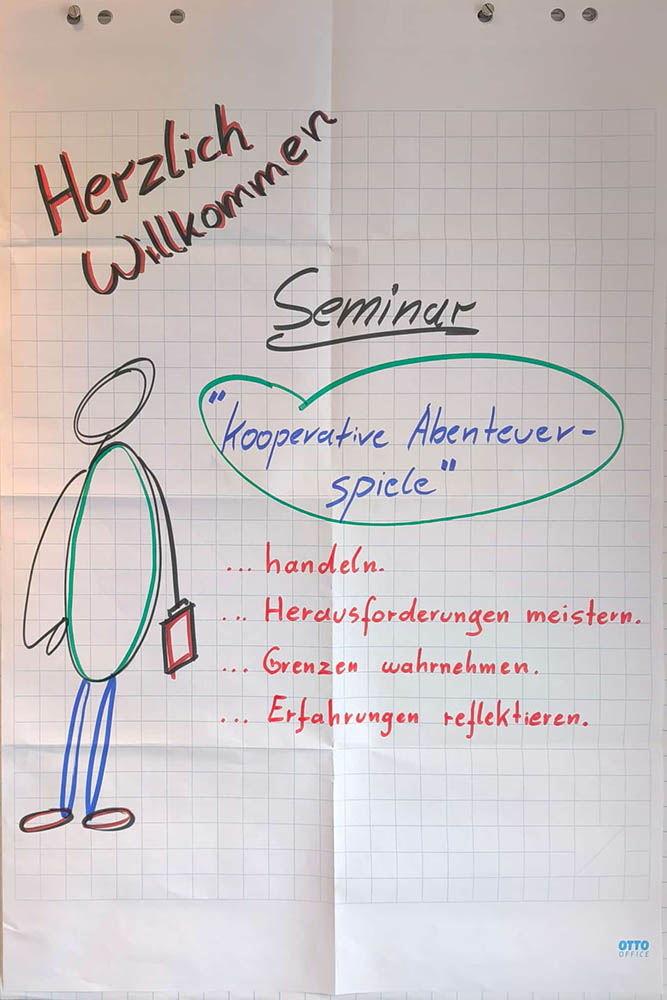 Herzlich
Willkommen
Seminar
"Kooperative Abenteuer-
spiele"
... handeln.
... Herausforderungen meistern.
... Grenzen wahrnehmen.
... Erfahrungen reflektieren.
OTTO
OFFICE